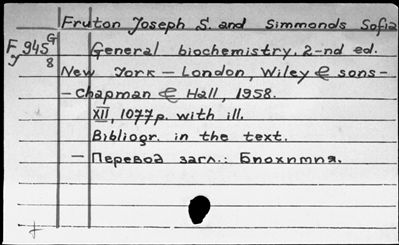 Fruton Joseph S. and Simmonds Sofia
F 945 G
J 8
General biochemistry. 2-nd ed.
New York – London, Wiley & sons-
-Chapman & Hall, 1958.
XII, 1077p. with ill.
Bibliogr. in the text.
– Перевод загл.: Биохимия.